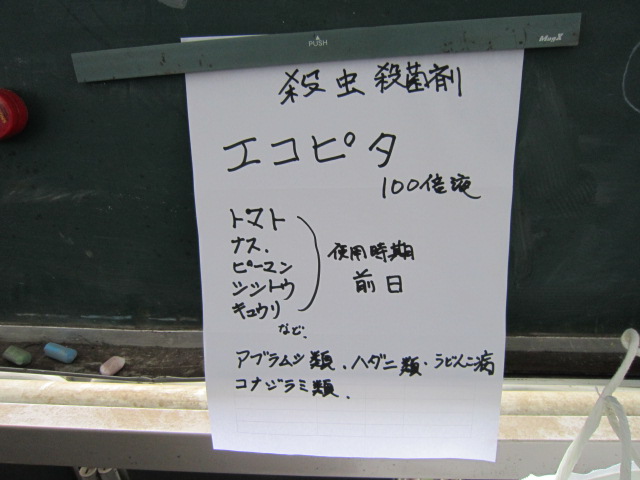 PUSH
MagX
殺虫殺菌剤
エコピタ
100倍液
トマト
ナス、
ピーマン
シシトウ
キュウリ
など、
使用時期
前日
アブラムシ類、ハダニ類・うどんこ病
コナジラミ類、